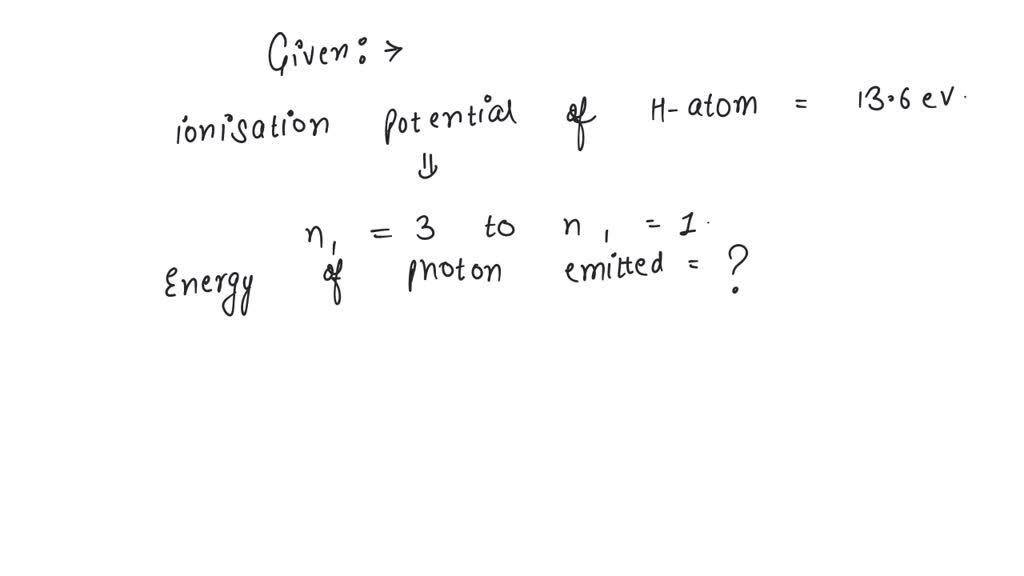 Given: →
ionisation potential of H-atom = 13.6 eV.
⇓
n₁ = 3 to n₁ = 1.
Energy of photon emitted = ?